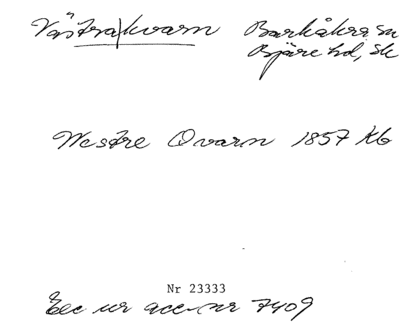 Västra|kvarn Barkåkra sn
Bjäre hd, Sk
Westre Qvarn 1857 Kb
Nr 23333
Exc ur acc. nr 7409